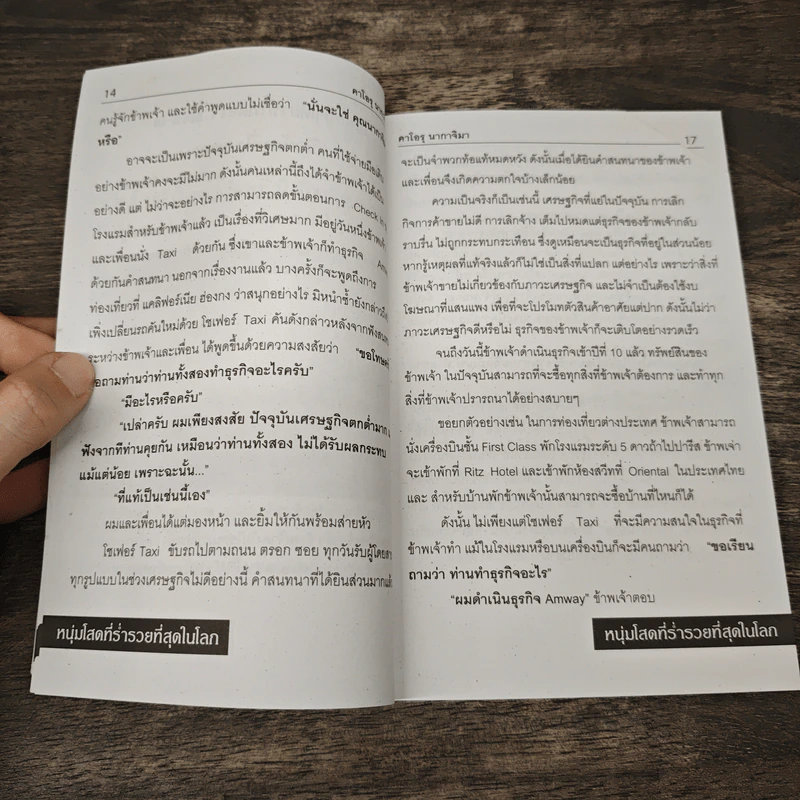 14
คาโอรุ
คนรู้จักข้าพเจ้า และใช้คำพูดแบบไม่เชื่อว่า "นั่นจะใช่ คุณนากาจิมา
หรือ"
อาจจะเป็นเพราะปัจจุบันเศรษฐกิจตกต่ำ คนที่ใช้จ่ายมือเติบ
อย่างข้าพเจ้าคงจะมีไม่มาก ดังนั้นคนเหล่านี้ถึงได้จำข้าพเจ้าได้เป็น
อย่างดี แต่ ไม่ว่าจะอย่างไร การสามารถลดขั้นตอนการ Check in
โรงแรมสำหรับข้าพเจ้าแล้ว เป็นเรื่องที่วิเศษมาก มีอยู่วันหนึ่งข้าพเจ้า
และเพื่อนนั่ง Taxi ด้วยกัน ซึ่งเขาและข้าพเจ้าก็ทำธุรกิจ
ด้วยกันคำสนทนา นอกจากเรื่องงานแล้ว บางครั้งก็จะพูดถึงการ
ท่องเที่ยวที่ แคลิฟอร์เนีย ฮ่องกง ว่าสนุกอย่างไร มิหนำซ้ำยังกล่าวถึง
เพิ่งเปลี่ยนรถคันใหม่ด้วย โชเฟอร์ Taxi คันดังกล่าวหลังจากฟังสนทนา
ระหว่างข้าพเจ้าและเพื่อน ได้พูดขึ้นด้วยความสงสัยว่า "ขอโทษ
ถามท่านว่าท่านทั้งสองทำธุรกิจอะไรครับ"
"มีอะไรหรือครับ"
"เปล่าครับ ผมเพียงสงสัย ปัจจุบันเศรษฐกิจตกต่ำมาก
ฟังจากทีท่านคุยกัน เหมือนว่าท่านทั้งสอง ไม่ได้รับผลกระทบ
แม้แต่น้อย เพราะฉะนั้น..."
"ที่แท้เป็นเช่นนี้เอง"
ผมและเพื่อนได้แต่มองหน้า และยิ้มให้กันพร้อมส่ายหัว
โชเฟอร์ Taxi ขับรถไปตามถนน ตรอก ซอย ทุกวันรับผู้โดยสาร
ทุกรูปแบบในช่วงเศรษฐกิจไม่ดีอย่างนี้ คำสนทนาที่ได้ยินส่วนมากแล้ว
หนุ่มโสดที่ร่ำรวยที่สุดในโลก
คาโอรุ นากาจิมา
17
จะเป็นจำพวกท้อแท้หมดหวัง ดังนั้นเมื่อได้ยินคำสนทนาของข้าพเจ้า
และเพื่อนจึงเกิดความตกใจบ้างเล็กน้อย
ความเป็นจริงก็เป็นเช่นนี้ เศรษฐกิจที่แย่ในปัจจุบัน การเลิก
กิจการค้าขายไม่ดี การเลิกจ้าง เต็มไปหมดแต่ธุรกิจของข้าพเจ้ากลับ
ราบรื่น ไม่ถูกกระทบกระเทือน ซึ่งดูเหมือนจะเป็นธุรกิจที่อยู่ในส่วนน้อย
หากรู้เหตุผลที่แท้จริงแล้วก็ไม่ใช่เป็นสิ่งที่แปลก แต่อย่างไร เพราะว่าสิ่งที่
ข้าพเจ้าขายไม่เกี่ยวข้องกับภาวะเศรษฐกิจ และไม่จำเป็นต้องใช้งบ
โฆษณาที่แสนแพง เพื่อที่จะโปรโมทตัวสินค้าอาศัยแต่ปาก ดังนั้นไม่ว่า
ภาวะเศรษฐกิจดีหรือไม่ ธุรกิจของข้าพเจ้าก็จะเติบโตอย่างรวดเร็ว
จนถึงวันนี้ข้าพเจ้าดำเนินธุรกิจเข้าปีที่ 10 แล้ว ทรัพย์สินของ
ข้าพเจ้า ในปัจจุบันสามารถที่จะซื้อทุกสิ่งที่ข้าพเจ้าต้องการ และทำทุก
สิ่งที่ข้าพเจ้าปรารถนาได้อย่างสบายๆ
ขอยกตัวอย่างเช่น ในการท่องเที่ยวต่างประเทศ ข้าพเจ้าสามารถ
นั่งเครื่องบินชั้น First Class พักโรงแรมระดับ 5 ดาวถ้าไปปารีส ข้าพเจ่า
จะเข้าพักที่ Ritz Hotel และเข้าพักห้องสวีทที่ Oriental ในประเทศไทย
และ สำหรับบ้านพักข้าพเจ้านั้นสามารถจะซื้อบ้านที่ไหนก็ได้
ดังนั้น ไม่เพียงแต่โชเฟอร์ Taxi ที่จะมีความสนใจในธุรกิจที่
ข้าพเจ้าทำ แม้ในโรงแรมหรือบนเครื่องบินก็จะมีคนถามว่า "ขอเรียน
ถามว่า ท่านทำธุรกิจอะไร"
"ผมดำเนินธุรกิจ Amway" ข้าพเจ้าตอบ
หนุ่มโสดที่ร่ำรวยที่สุดในโลก